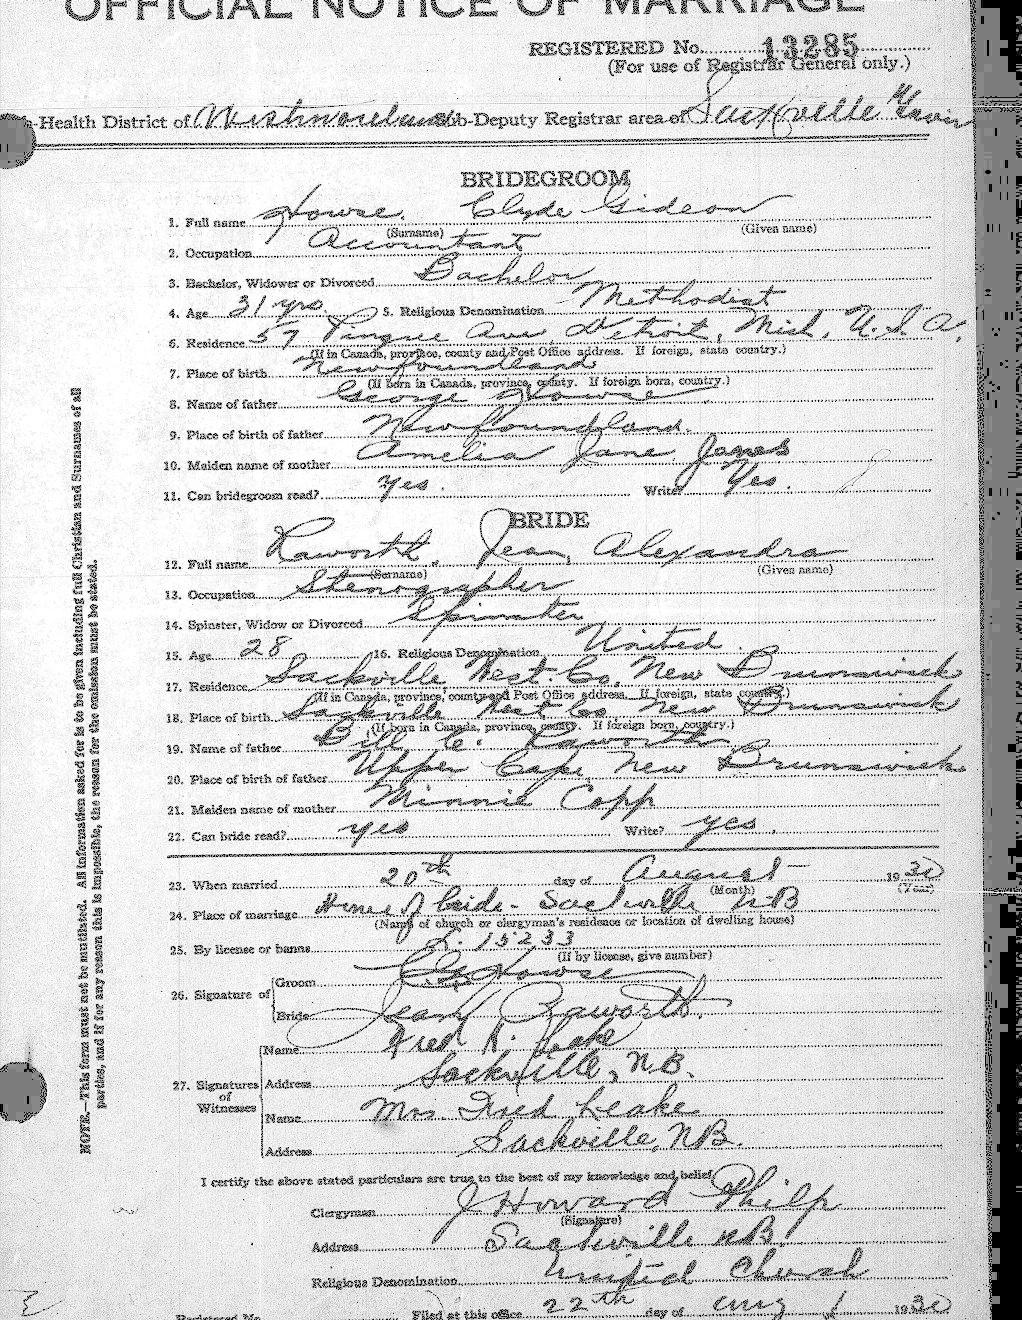 OFFICIAL NOTICE OF MARRIAGE
REGISTERED No. 13285
(For use of Registrar General only.)
-Health District of Westmorland Sub-Deputy Registrar area of Sackville
BRIDEGROOM
1. Full name Howse. Clyde Gideon
(Surname) (Given name)
2. Occupation Accountant
3. Bachelor, Widower or Divorced Bachelor
4. Age 31 yrs. 5. Religious Denomination Methodist
6. Residence 57 Pingree Ave. Detroit, Mich, U.S.A.
(If in Canada, province, county and Post Office address. If foreign, state country.)
7. Place of birth Newfoundland
(If born in Canada, province, county. If foreign born, country.)
8. Name of father George Howse
9. Place of birth of father Newfoundland.
10. Maiden name of mother Amelia Jane Janes
11. Can bridegroom read? Yes. Write? Yes.
BRIDE
12. Full name Raworth, Jean, Alexandra
(Surname) (Given name)
13. Occupation Stenographer
14. Spinster, Widow or Divorced Spinster
15. Age 28 16. Religious Denomination United.
17. Residence Sackville West. Co. New Brunswick
(If in Canada, province, county and Post Office address. If foreign, state country.)
18. Place of birth Sackville West Co New Brunswick
(If born in Canada, province, county. If foreign born, country.)
19. Name of father Bill C. Raworth
20. Place of birth of father Upper Cape, New Brunswick
21. Maiden name of mother Minnie Copp
22. Can bride read? yes Write? yes.
23. When married 20th day of August 1930
(Month) (Year)
24. Place of marriage Home of bride - Sackville N-B
(Name of church or clergyman's residence or location of dwelling house)
25. By license or banns L. 15233
(If by license, give number)
26. Signature of Groom C G Howse
Bride Jean Raworth.
27. Signatures of Witnesses
Name Fred R. Leake
Address Sackville, N.B.
Name Mrs Fred Leake
Address Sackville, NB.
I certify the above stated particulars are true to the best of my knowledge and belief
Clergyman J Howard Philp
(Signature)
Address Sackville NB.
Religious Denomination United Church
Registered No. Filed at this office 22th day of Aug 1930
NOTE.—This form must not be mutilated. All information asked for is to be given including full Christian and Surnames of all
parties, and if for any reason this is impossible, the reason for the omission must be stated.